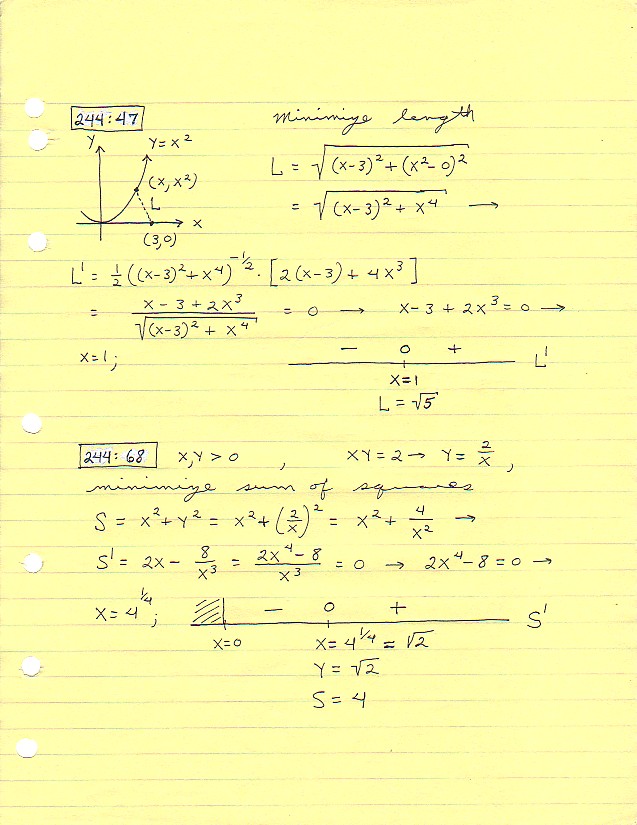 244:47 minimize length
Y
Y=x²
(x,x²)
L
x
(3,0)
L = √((x-3)²+(x²-0)²)
= √((x-3)²+x⁴) →
L' = 1/2 ((x-3)²+x⁴)^(-1/2) · [2(x-3)+4x³]
= (x-3+2x³)/√((x-3)²+x⁴) = 0 → x-3+2x³=0 →
x=1; - 0 + L'
x=1
L = √5
244:68 x,y>0 , xy=2 → y = 2/x ,
minimize sum of squares
S = x²+y² = x²+(2/x)² = x²+4/x² →
S' = 2x - 8/x³ = (2x⁴-8)/x³ = 0 → 2x⁴-8=0 →
x=4^(1/4); - 0 + S'
x=0 x=4^(1/4)=√2
y=√2
S=4